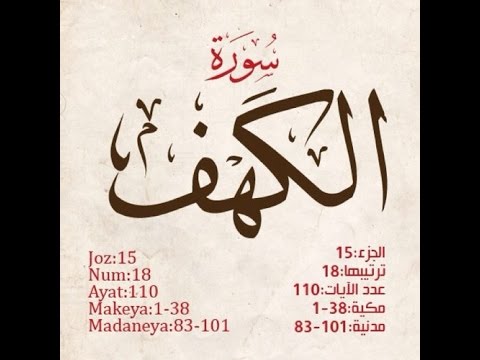 سُورَة
الكَهف
Joz:15
Num:18
Ayat:110
Makeya:1-38
Madaneya:83-101
الجزء:15
ترتيبها:18
عدد الآيات:110
مكية:38-1
مدنية:101-83